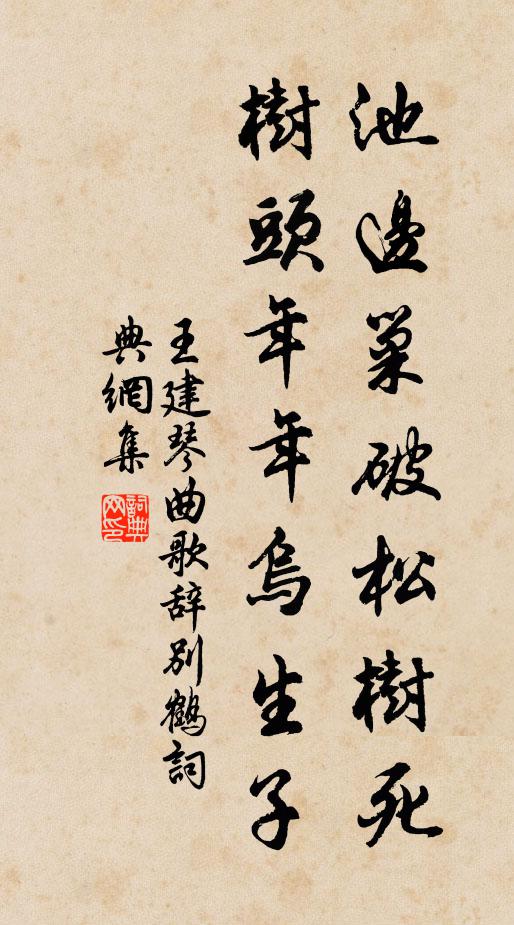 池邊巢破松樹死
樹頭年年烏生子
王建琴曲歌辞別鶴詞
典網集
詞典網印